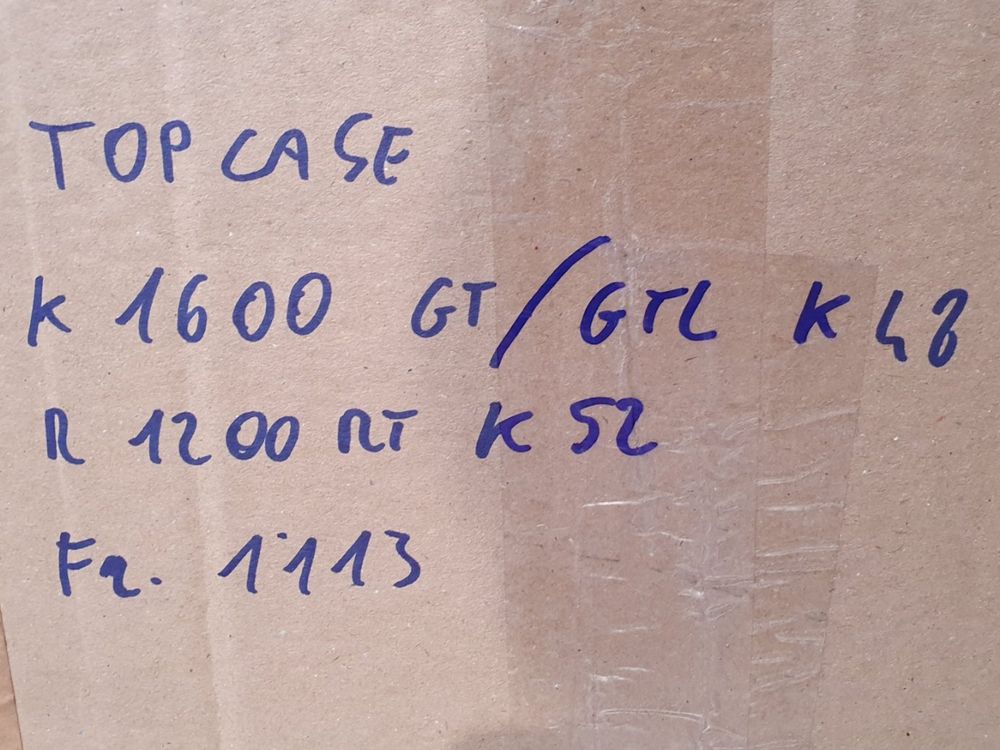 TOPCASE
K 1600 GT/GTL K48
R 1200 RT K52
Fa. 1113